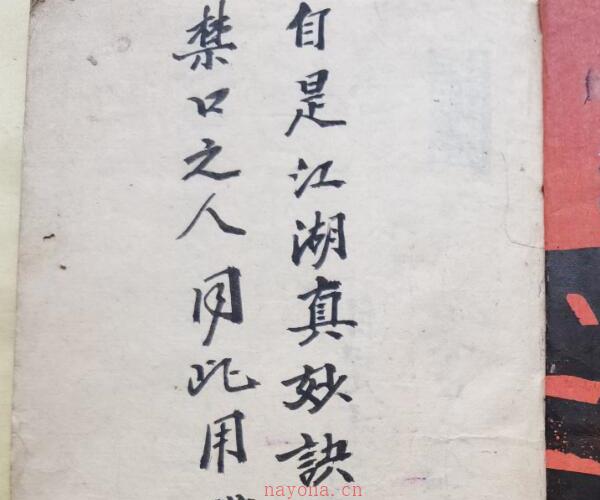 自是江湖真妙訣
禁口之人同此用
nayona.cn